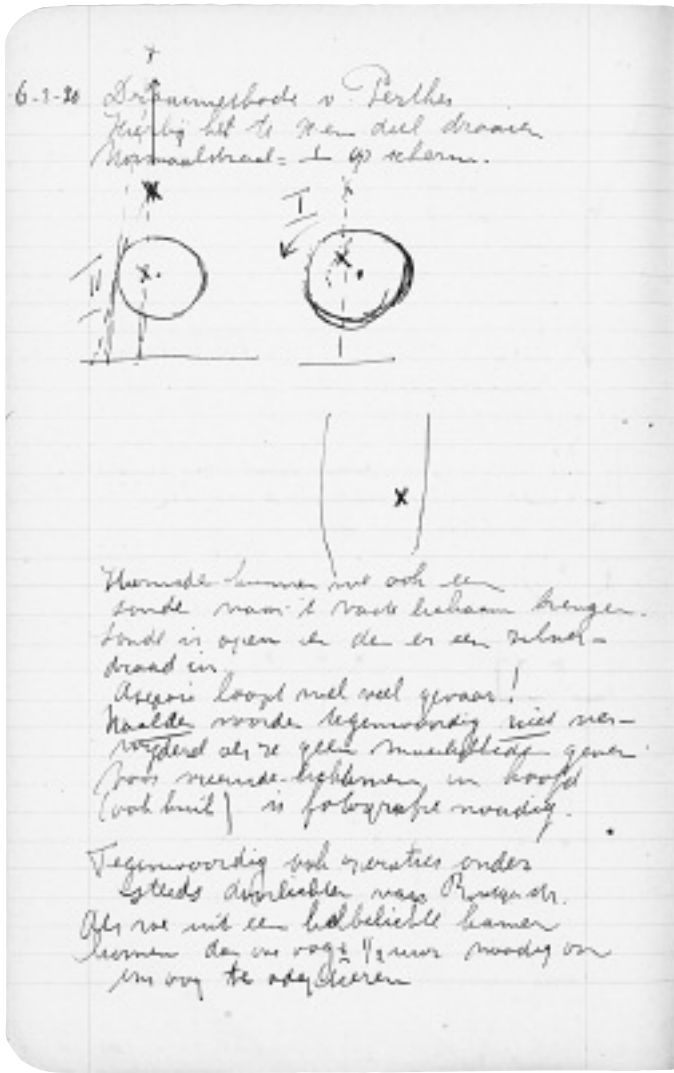 6-1-20 Draaimethode v. Perthes
Hierbij het te den deel draaien
Normaalstraal = ⊥ op scherm.
I
II
Hiermede kunnen we ook een
sonde naar 't vaste lichaam brengen.
Sonde is open en dan er een zilver-
draad in.
Asepsis loopt wel veel gevaar!
Naalden worden tegenwoordig niet ver-
wijderd als ze geen moeilijkheden geven.
Voor vreemde lichamen in hoofd
(ook buik) is fotografie noodig.
Tegenwoordig ook operaties onder
steeds doorlichten van Röntgenstr.
Als we uit een helbelichte kamer
komen dan we nog ± 1/2 uur noodig om
ons oog te